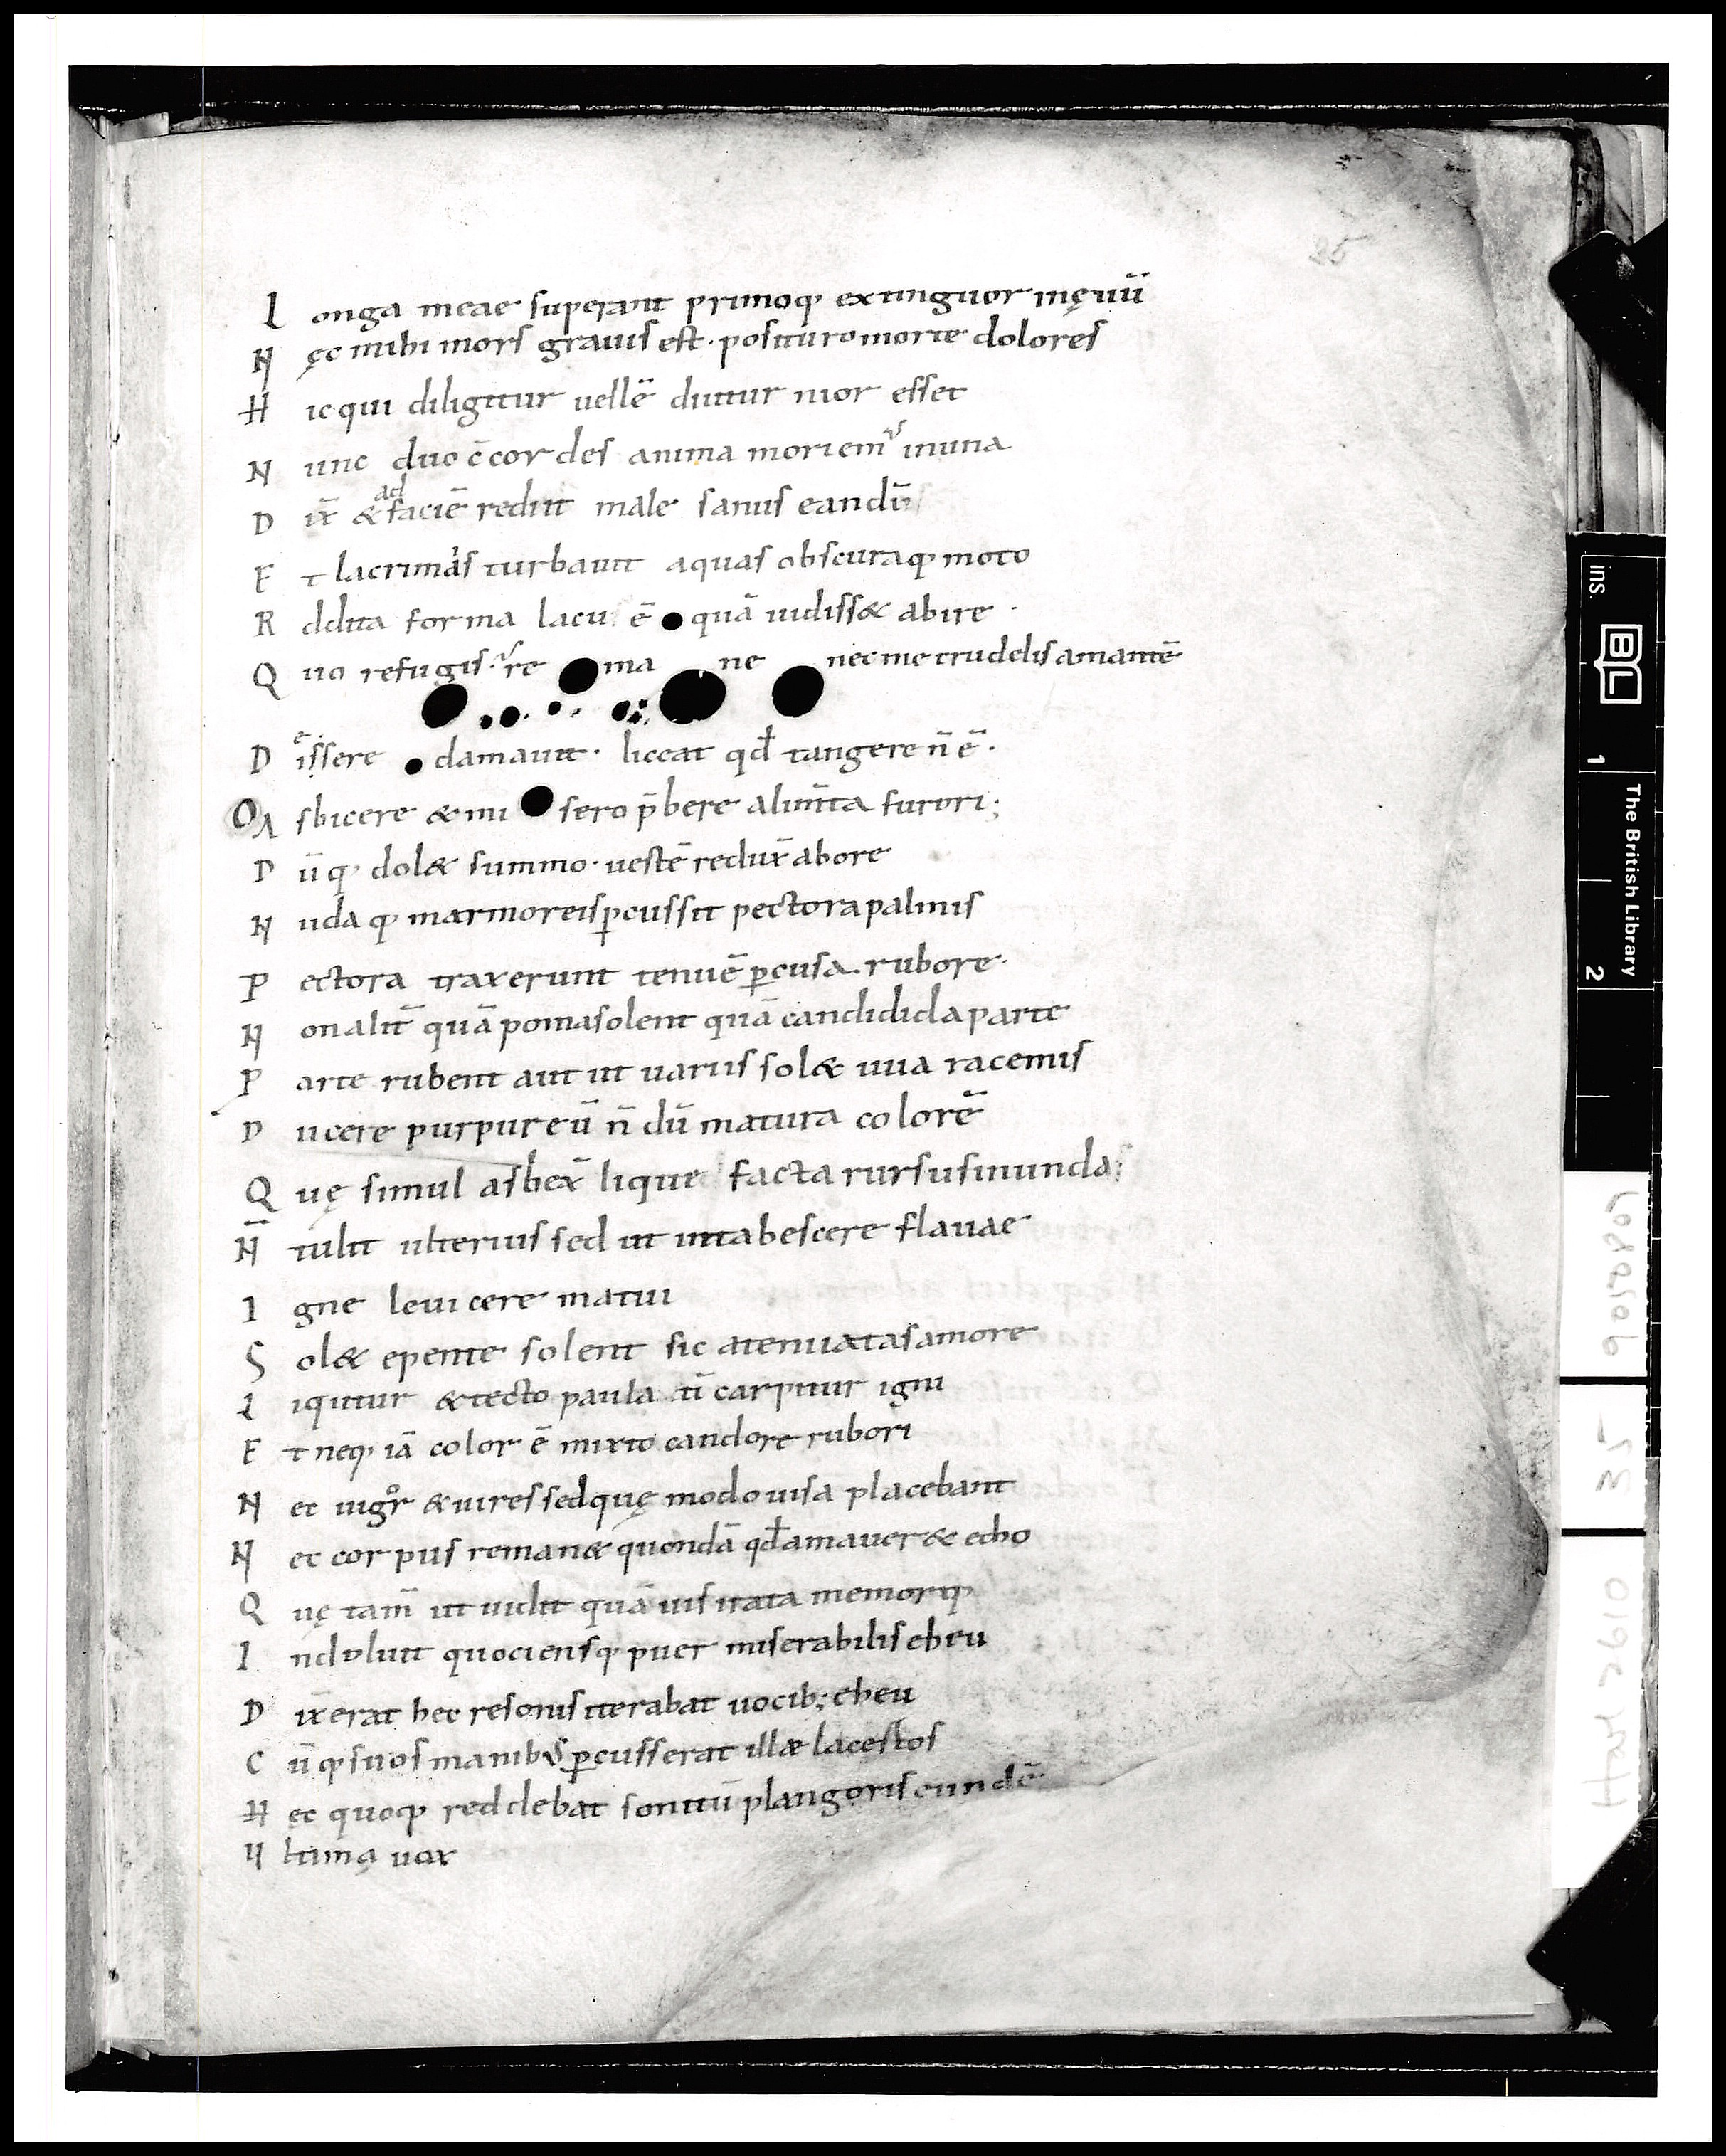 25
L onga meae superant primoq; extinguor inęuū
N ęc mihi mors grauis est · posituro morte dolores
H ic qui diligitur uellē diutur nior esset
N unc duo c̄cordes anima moriem̄ inuna
D ix̄ & ad faciē rediit male sanus eandū
E t lacrimis turbauit aquas obscuraq; moto
R ddita forma lacu ē quā uidiss& abire ·
Q uo refugis · re ma ne nec me crudelis amantē
D issere damauit · liceat qđ tangere n̄ ē ·
A sbicere & mi sero p̄bere alim̄ta furori;
D ūq; dol& summo · uestē redux̄ abore
N uda q; marmoreis ꝑcussit pectora palmis
P ectora traxerunt tenuē ꝑcusa rubore ·
N on alit̄ quā poma solent quā candidida parte
P arte rubent aut ut uariis sol& uua racemis
D ucere purpureū n̄ dū matura colorē
Q uę simul asbex̄ lique facta rursus inunda
N̄ tulit ulterius sed ut intabescere flauae
I gne leui cere matui
S ol& epente solent sic atenuatas amore
L iquitur & tecto paula tī carpitur igni
E t neq; iā color ē mixto candore rubori
N ec uigor & uires sed quę modo uisa placebant
N ec corpus reman& quondā qđ amauer& echo
Q uę tam̄ ut uidit quā uis irata memorq;
I ndoluit quociensq; puer miserabilis eheu
D ixerat hec resonis iterabat uocib; eheu
C ūq; suos manibus ꝑcusserat illæ lacestos
H ęc quoq; reddebat sonitū plangoris eundē
U ltima uox
ins.
BL
1
The British Library
2
60158807
35
Harl 2610